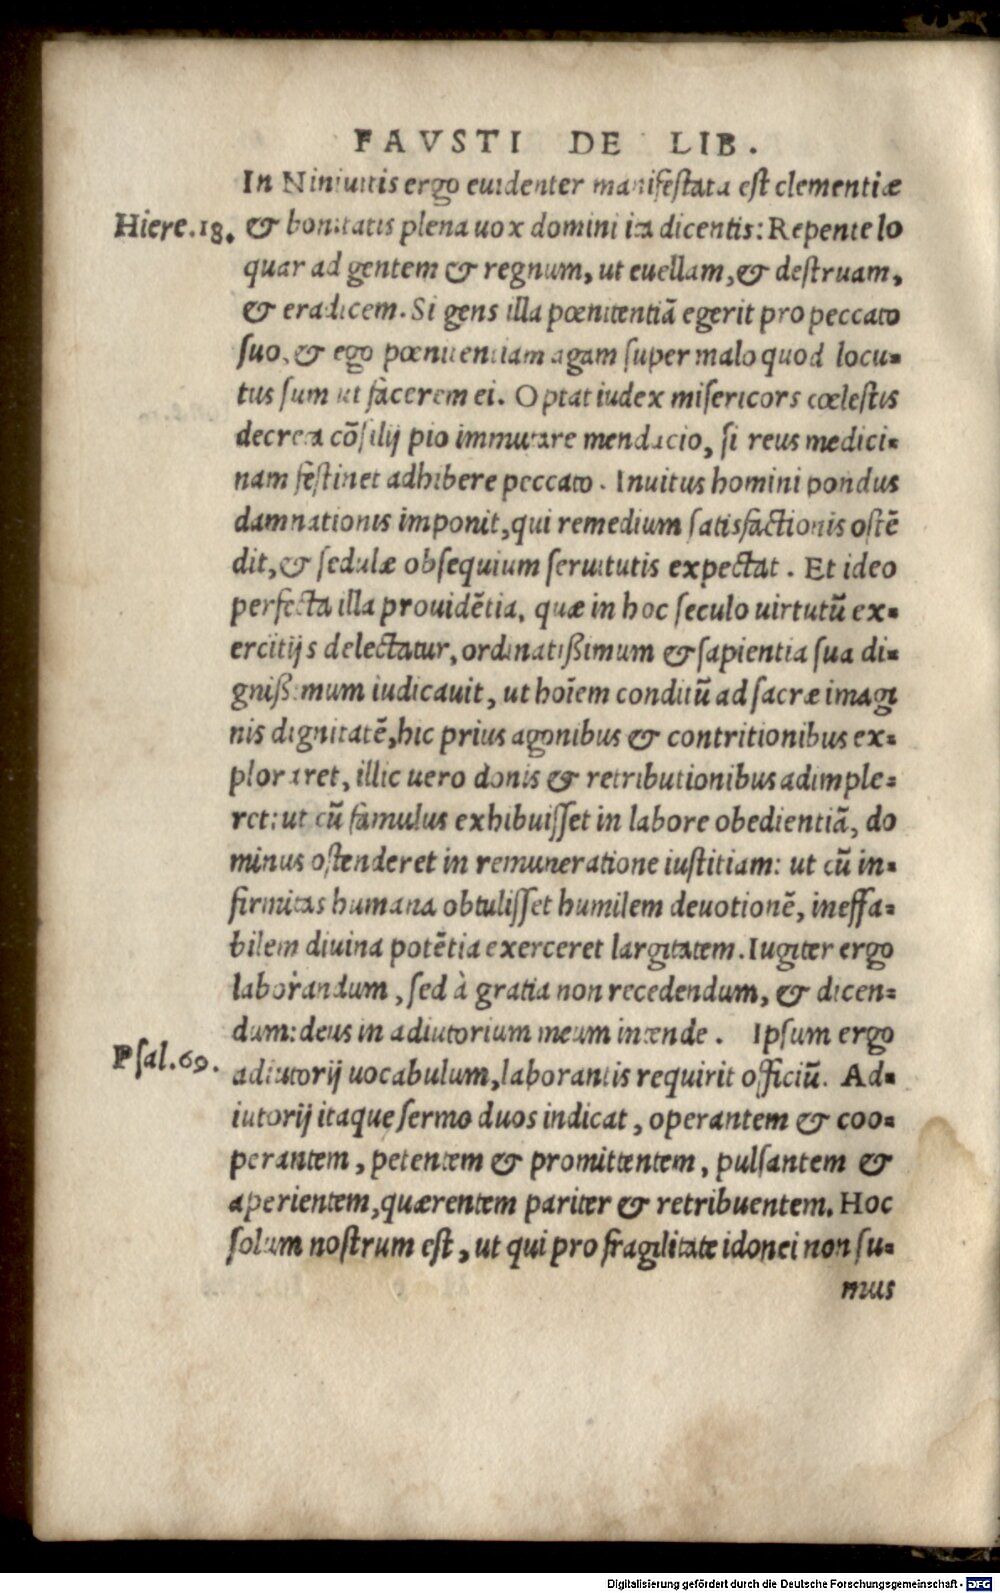 FAVSTI DE LIB.
In Niniuitis ergo euidenter manifestata est clementiæ
Hiere.18. & bonitatis plena uox domini ita dicentis: Repente lo
quar ad gentem & regnum, ut euellam, & destruam,
& eradicem. Si gens illa pœnitentiã egerit pro peccato
suo, & ego pœnitentiam agam super malo quod locu-
tus sum ut facerem ei. Optat iudex misericors cœlestis
decreta cõsilij pio immutare mendacio, si reus medici-
nam festinet adhibere peccato. Inuitus homini pondus
damnationis imponit, qui remedium satisfactionis ostẽ
dit, & sedulæ obsequium seruitutis expectat. Et ideo
perfecta illa prouidẽtia, quæ in hoc seculo uirtutũ ex-
ercitijs delectatur, ordinatißimum & sapientia sua di-
gnißimum iudicauit, ut hoĩem conditũ ad sacræ imagi
nis dignitatẽ, hic prius agonibus & contritionibus ex-
ploraret, illic uero donis & retributionibus adimple-
ret: ut cũ famulus exhibuisset in labore obedientiã, do
minus ostenderet in remuneratione iustitiam: ut cũ in-
firmitas humana obtulisset humilem deuotionẽ, ineffa-
bilem diuina potẽtia exerceret largitatem. Iugiter ergo
laborandum, sed à gratia non recedendum, & dicen-
dum: deus in adiutorium meum intende. Ipsum ergo
Psal.69. adiutorij uocabulum, laborantis requirit officiũ. Ad-
iutorij itaque sermo duos indicat, operantem & coo-
perantem, petentem & promittentem, pulsantem &
aperientem, quærentem pariter & retribuentem. Hoc
solum nostrum est, ut qui pro fragilitate idonei non su-
mus
Digitalisierung gefördert durch die Deutsche Forschungsgemeinschaft - DFG